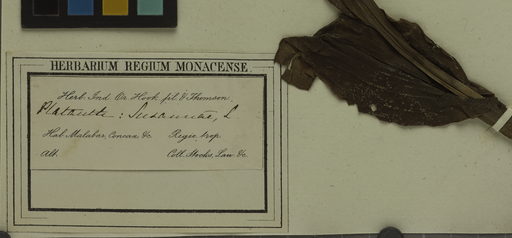 HERBARIUM REGIUM MONACENSE.
Herb. Ind. Or. Hook. fil. & Thomson.
Platanth: Susannae, L
Hab. Malabar, Concan &c. Regio trop.
Alt. Coll. Stocks, Law &c.